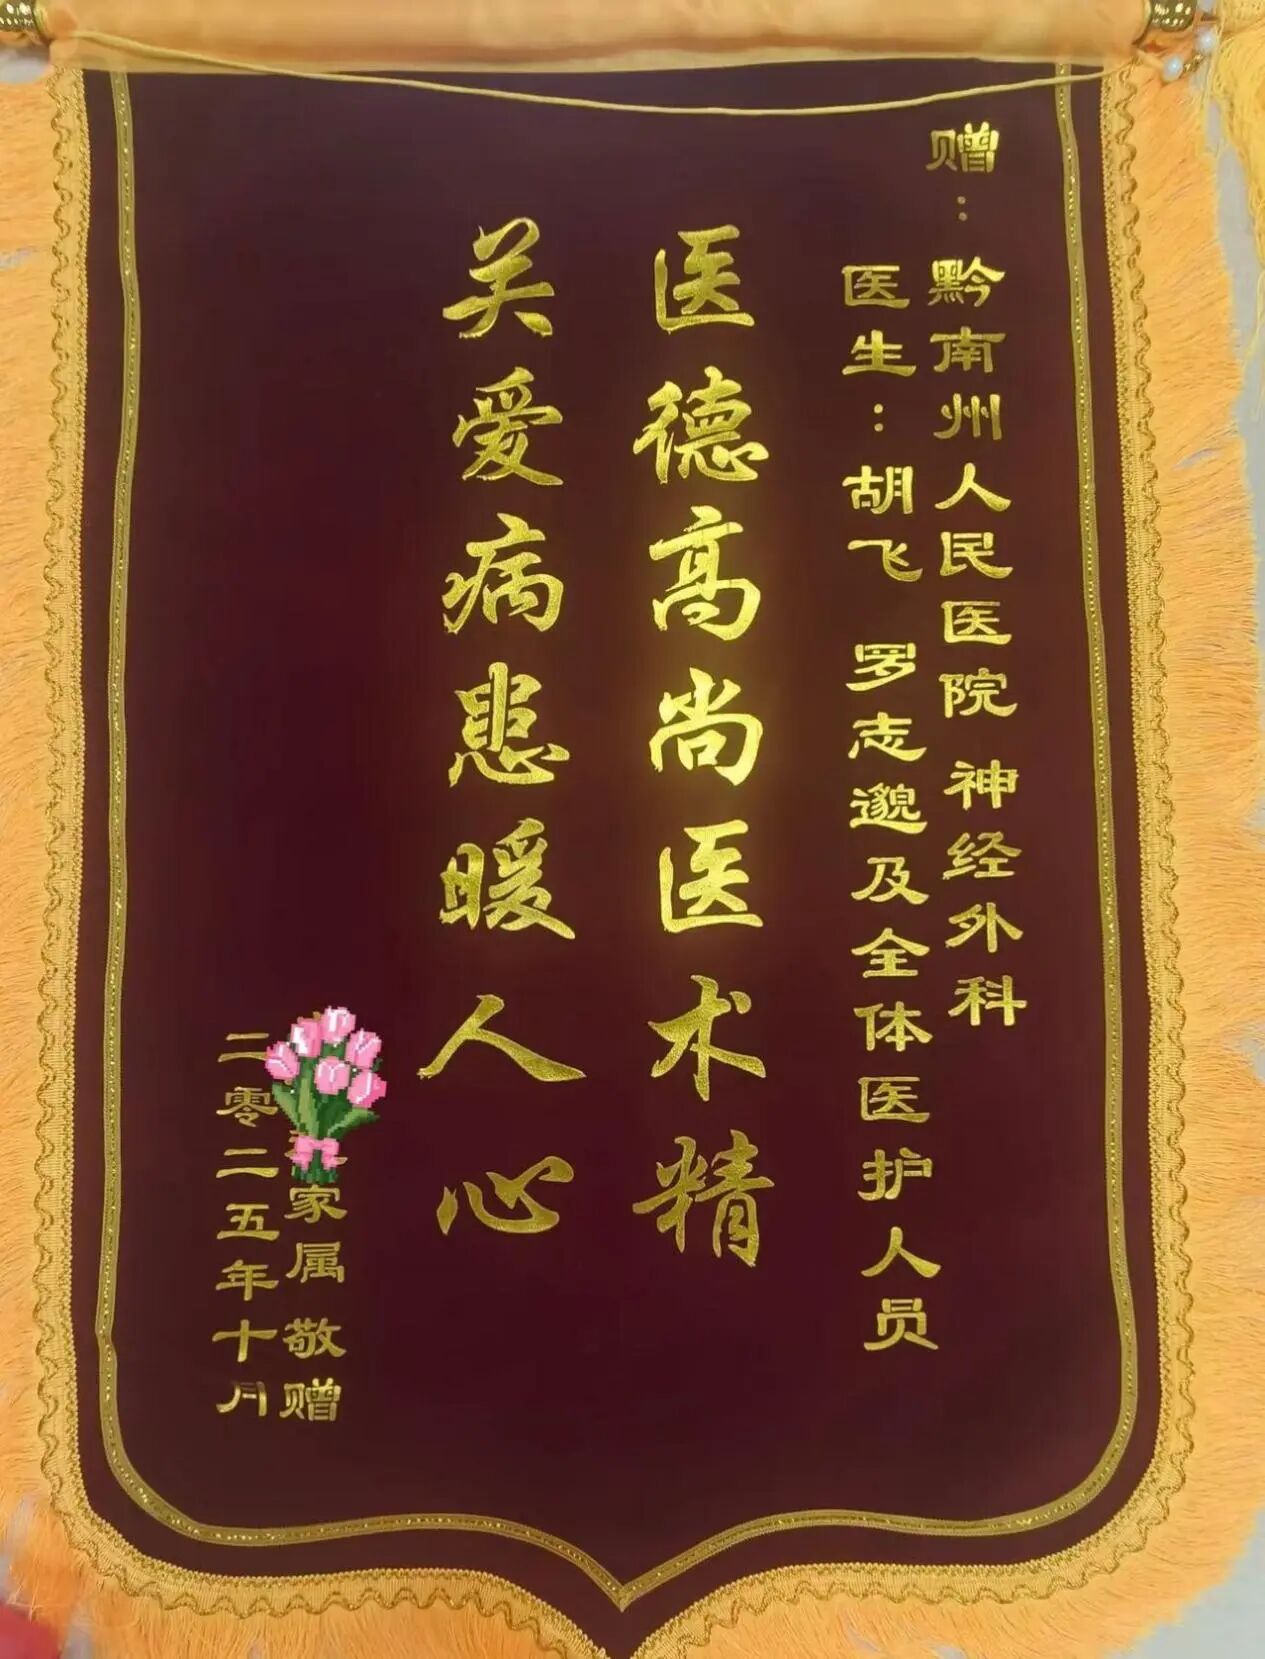 赠：黔南州人民医院 神经外科
医生：胡飞 罗志邈及全体医护人员
医德高尚医术精
关爱病患暖人心
家属 敬赠
二零二五年十月